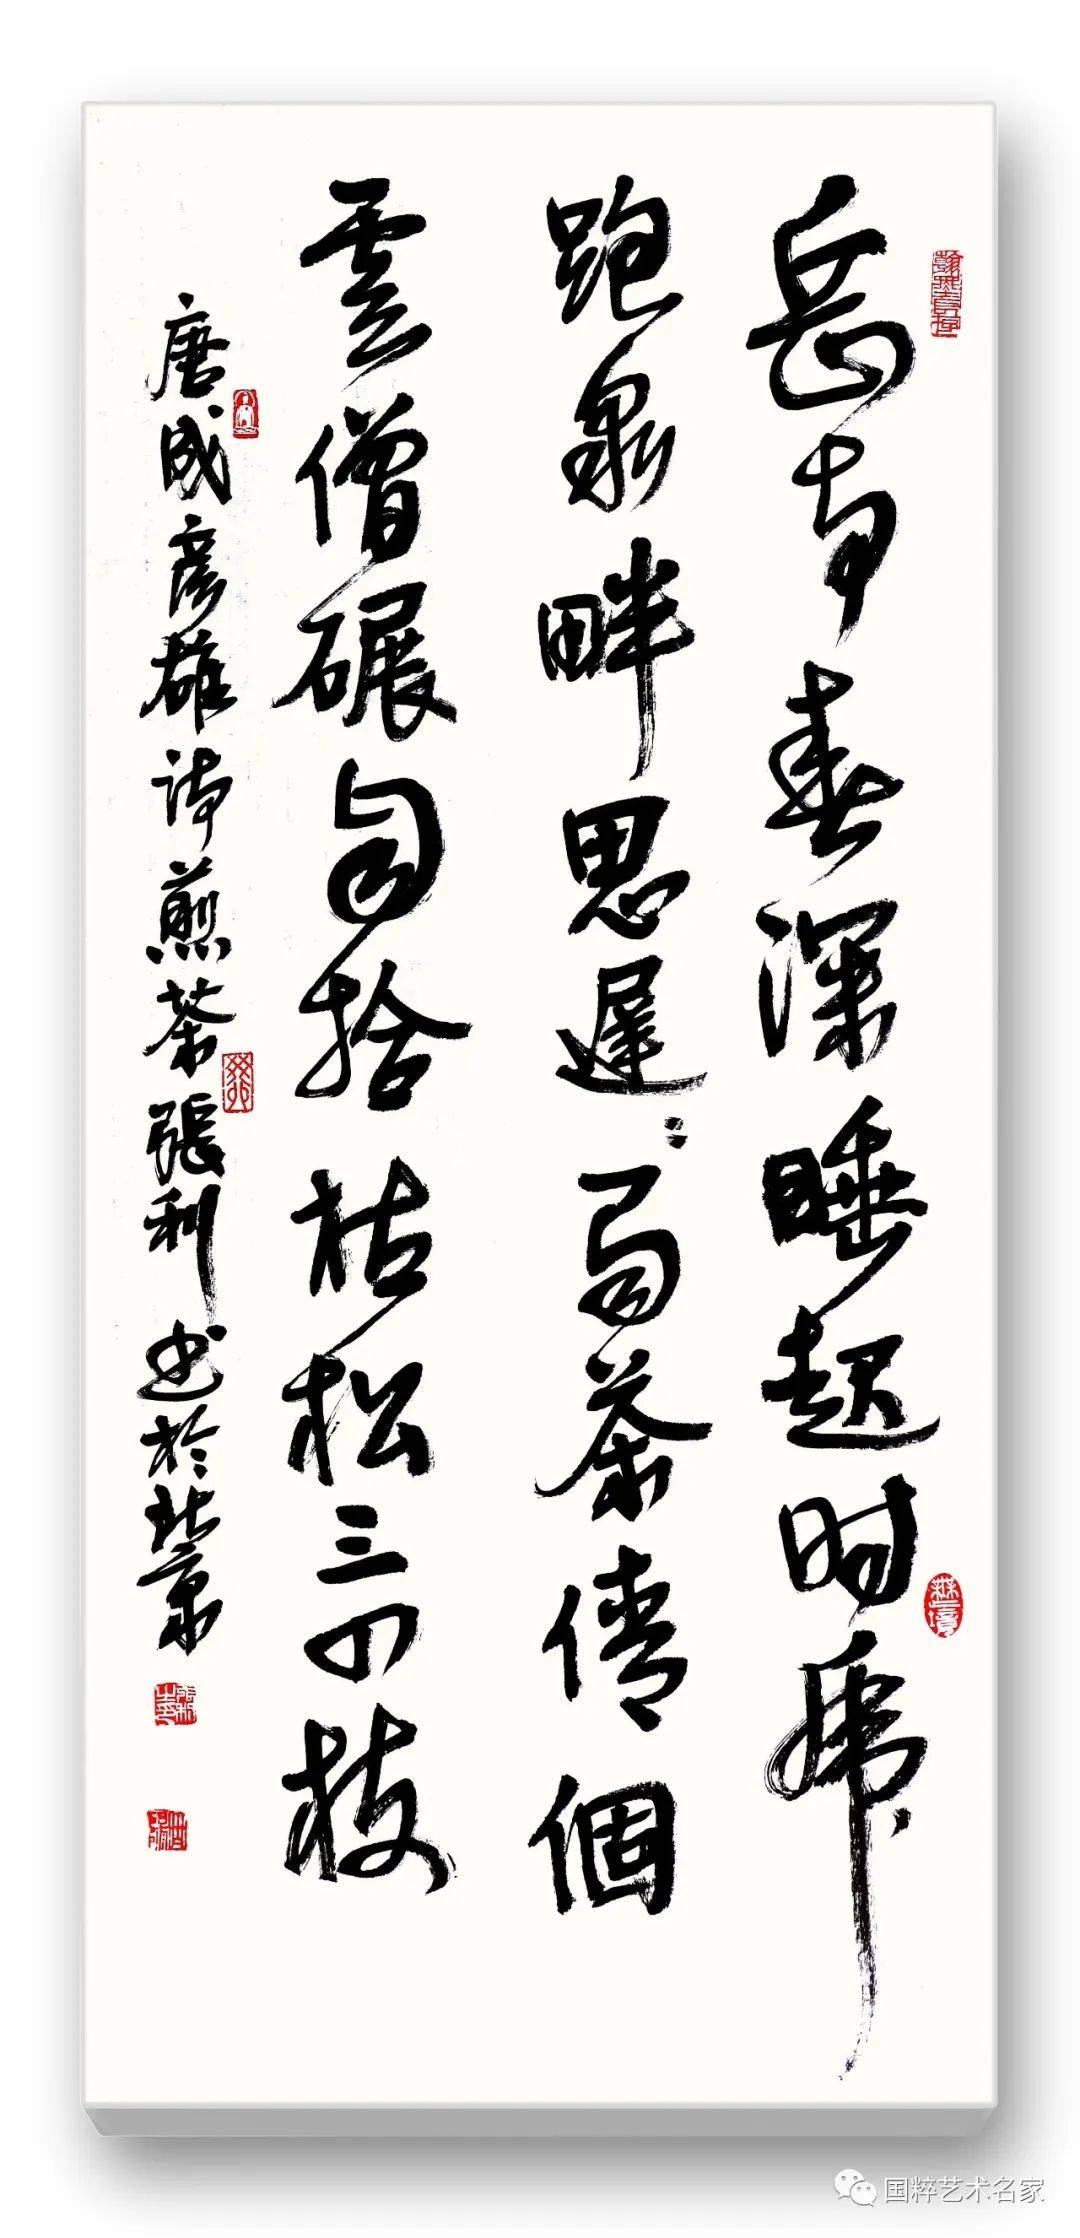 岳寺春深睡起时虎
跑泉畔思遲:蜀茶倩個
雲僧碾自拾枯松三四枝
唐成彦雄诗煎茶張利书於北京
国粹艺术名家